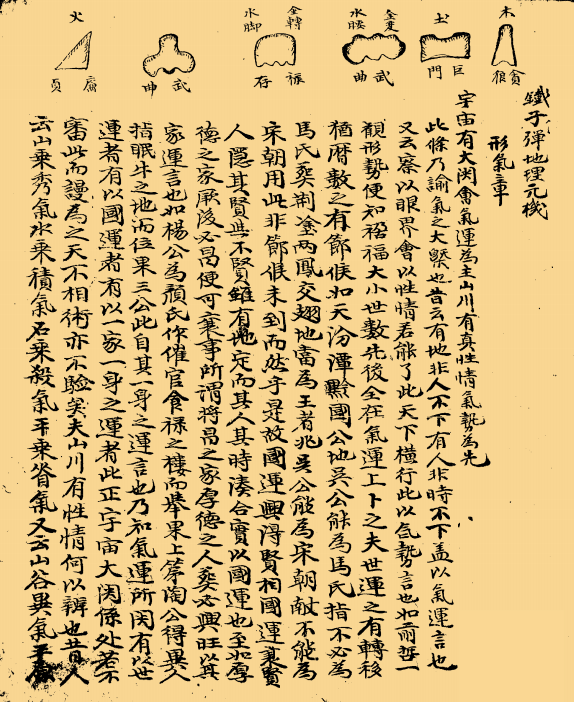 木
貪狼
土
巨門
金変
水㱔
武曲
金轉
水腳
祿存
武曲
火
廉貞
鐵子彈地理元機
形氣章
宇宙有大関會氣運為主山川有真性情氣勢為先
此條乃諭氣之大槩也昔云有地非人不下有人非時不下蓋以氣運言也
又云察以眼界會以性情若能了此天下橫行此以氣勢言也如前哲一
觀形勢便知禍福大小世數先後全在氣運上卜之夫世運之有轉移
猶曆數之有節候如天汾潭黟國公地吳公能為馬氏指不必為
馬氏葬荆塗兩鳳交翅地當為王者兆吳公能為宋朝献不能為
宋朝用此非節候未到而然乎是故國運興得賢相國運衰賢
人隱其賢與不賢雖有地定而其人其時湊合實以國運也至如厚
德之家厥後必昌便可棄事所謂將昌之家厚德之人葬必興旺以其
家運言也如楊公為顏氏作催官食祿之樓而舉果上第陶公得異人
指眠牛之地而位果三公此自其一身之運言也乃知氣運所関有以世
運者有以國運者有以一家一身之運者此正宇宙大関係处若不
審此而謾為之天不相術亦不驗矣夫山川有性情何以辨也昔人
云山乘秀氣水乘積氣石乘殺氣平乘脊氣又云山谷異氣平原